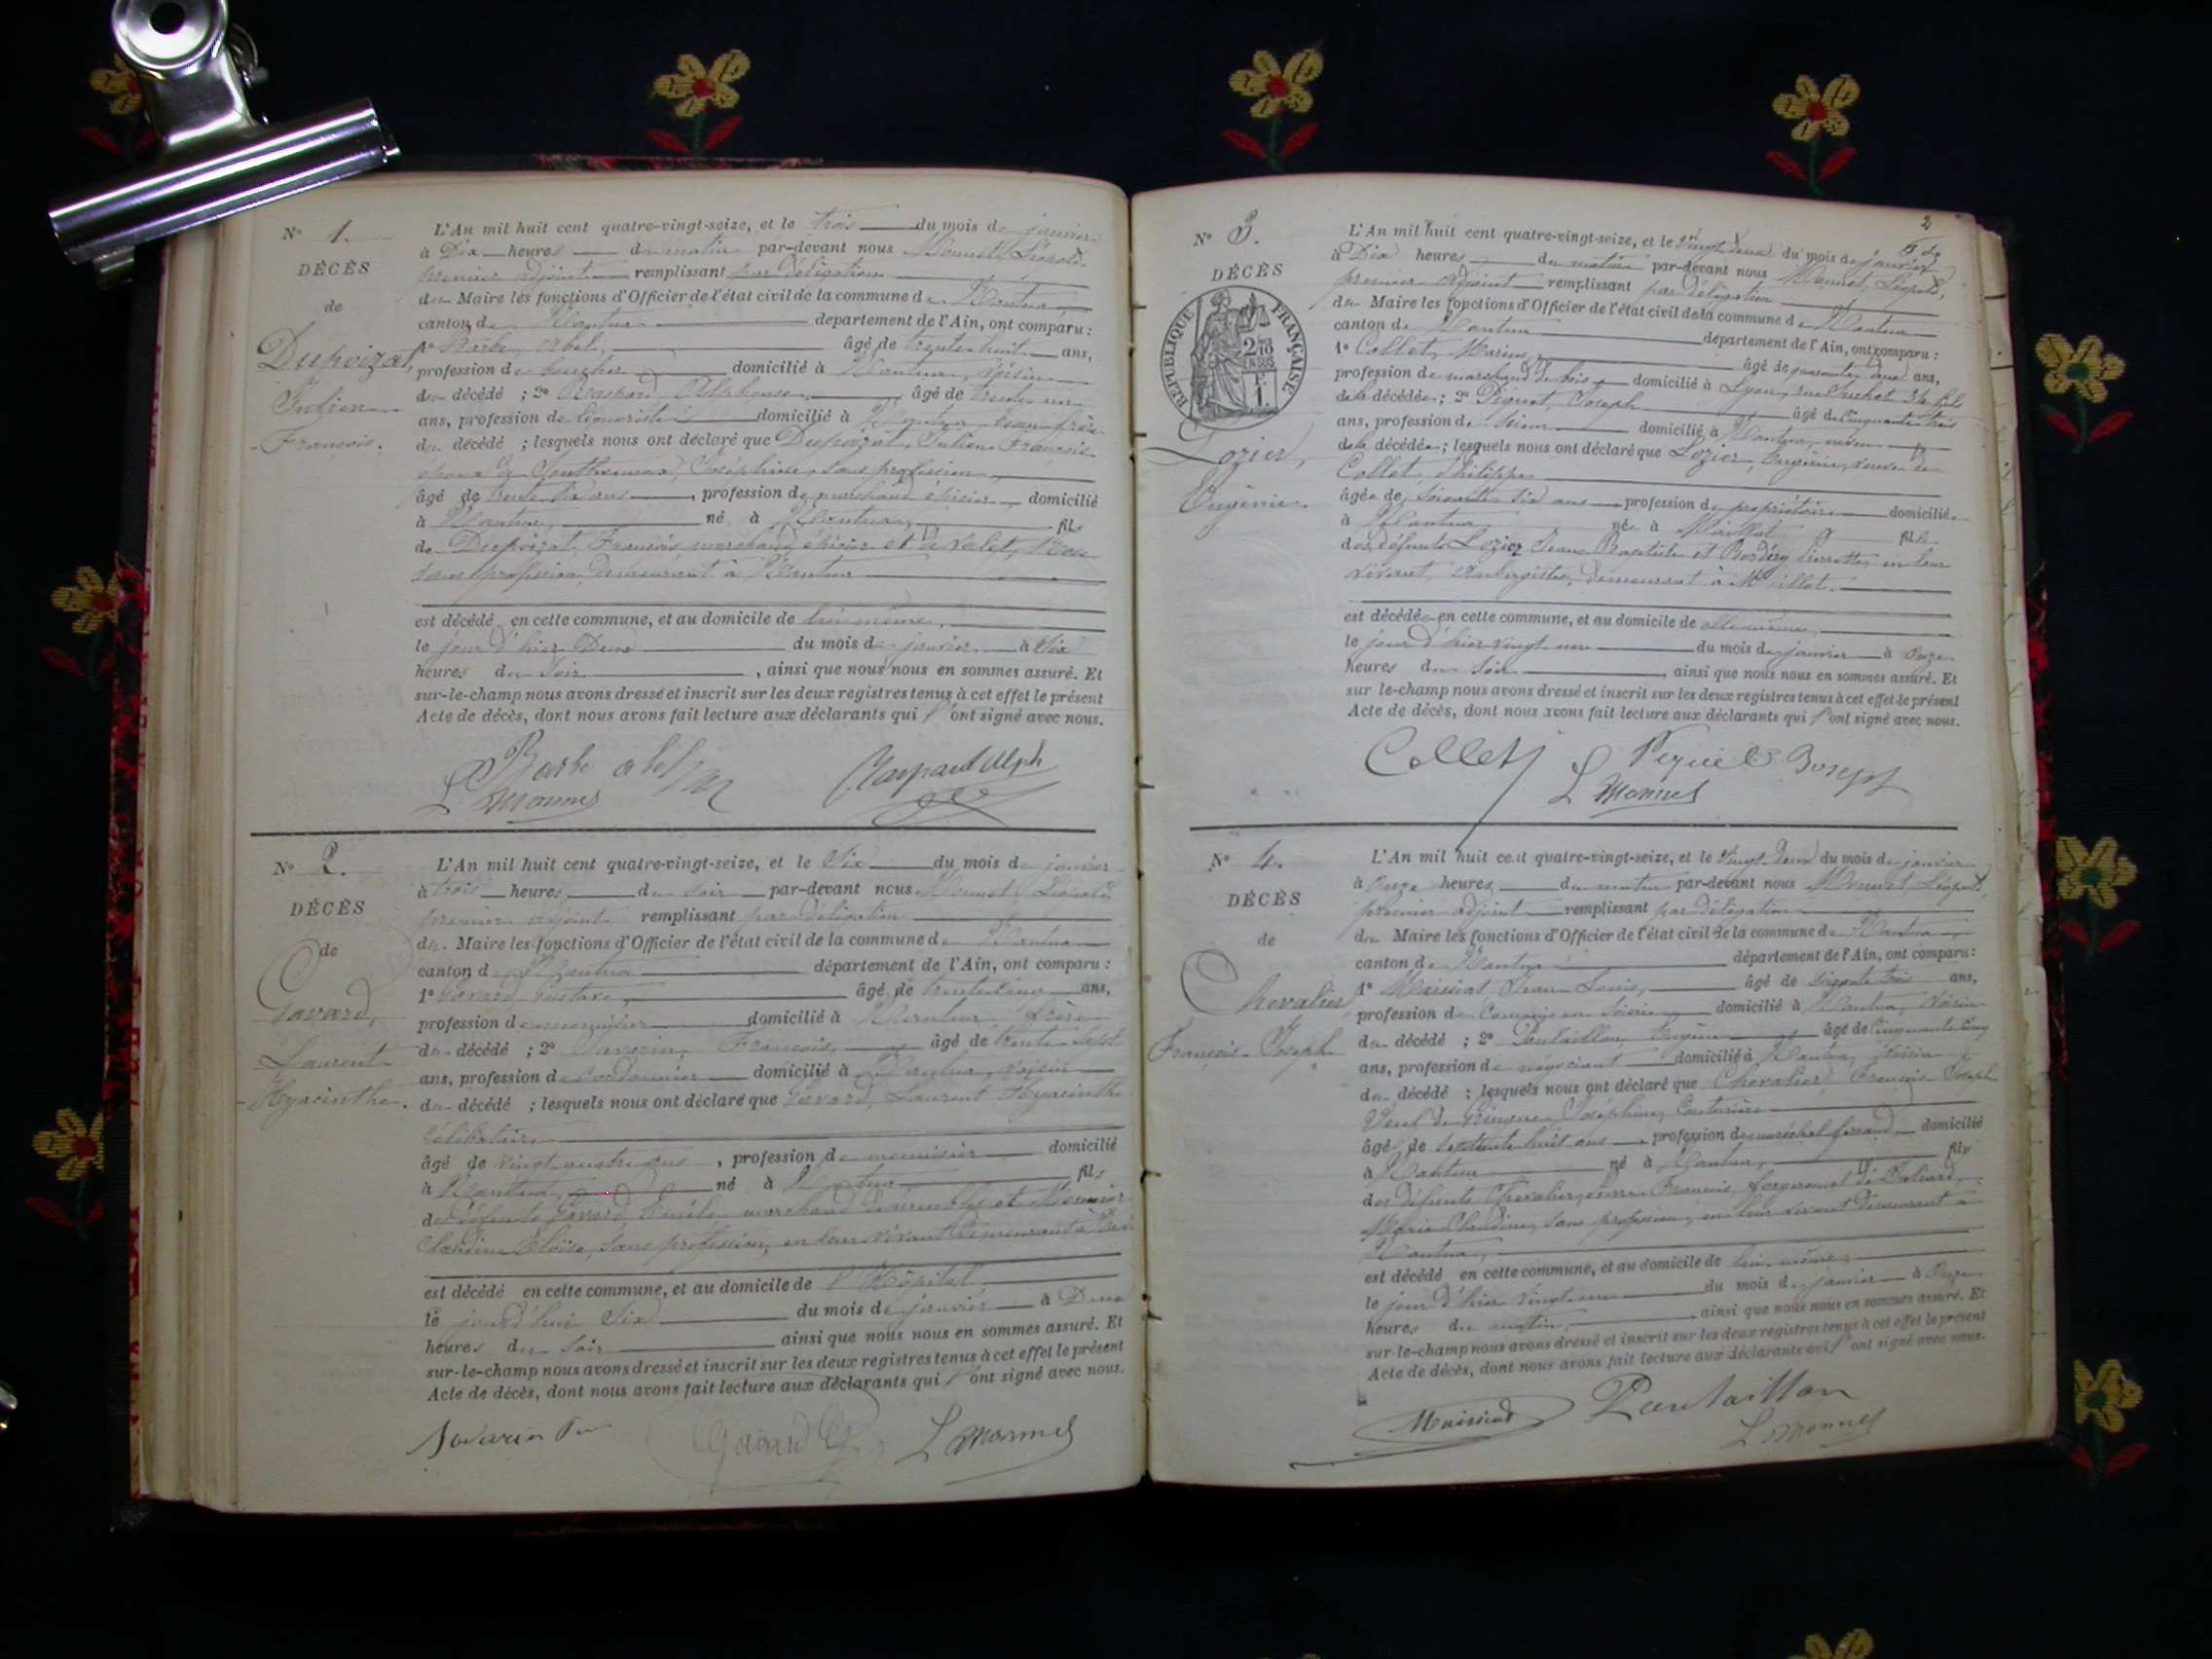 N° 1.
DÉCÈS
de
Dupoizat,
Julien
François.
L'An mil huit cent quatre-vingt-seize, et le trois du mois de janvier
à Dix heures du matin par-devant nous Monnet, Léopold,
premier adjoint remplissant par délégation
du Maire les fonctions d'Officier de l'état civil de la commune de Nantua,
canton de Nantua département de l'Ain, ont comparu :
1° Barbe, Abel, âgé de trente-huit ans,
profession de boucher domicilié à Nantua, voisin
du décédé ; 2° Raspand Alphonse, âgé de trente un
ans, profession de liquoriste domicilié à Nantua, beau-frère
du décédé ; lesquels nous ont déclaré que Dupoizat, Julien François
époux de Joséphine, sans profession,
âgé de trente ans, profession de marchand épicier domicilié
à Nantua, né à Nantua, fils
de Dupoizat, François, marchand épicier et de
sans profession, demeurant à Nantua
est décédé en cette commune, et au domicile de lui-même,
le jour d'hier Deux du mois de janvier à Six
heures du soir, ainsi que nous nous en sommes assuré. Et
sur-le-champ nous avons dressé et inscrit sur les deux registres tenus à cet effet le présent
Acte de décès, dont nous avons fait lecture aux déclarants qui l'ont signé avec nous.
Barbe abel
Raspand Alph
L Monnet
N° 2.
DÉCÈS
de
Gavard,
Laurent
Hyacinthe.
L'An mil huit cent quatre-vingt-seize, et le Six du mois de janvier
à trois heures du soir par-devant nous Monnet, Léopold,
premier adjoint remplissant par délégation
du Maire les fonctions d'Officier de l'état civil de la commune de Nantua
canton de Nantua département de l'Ain, ont comparu :
1° Gavard, Gustave, âgé de trente-cinq ans,
profession de menuisier domicilié à Nantua, frère
du décédé ; 2° Savarin, François, âgé de trente-sept
ans, profession de cordonnier domicilié à Nantua, voisin
du décédé ; lesquels nous ont déclaré que Gavard, Laurent Hyacinthe
célibataire
âgé de vingt-quatre ans, profession de menuisier domicilié
à Nantua, né à Nantua, fils
des défunts Gavard, marchand de meubles et
sans profession, en leur vivant demeurant à
est décédé en cette commune, et au domicile de l'Hôpital
le jour d'hui Six du mois de janvier à Deux
heures du soir ainsi que nous nous en sommes assuré. Et
sur-le-champ nous avons dressé et inscrit sur les deux registres tenus à cet effet le présent
Acte de décès, dont nous avons fait lecture aux déclarants qui l'ont signé avec nous.
Savarin
Gavard
L Monnet
2
N° 3.
DÉCÈS
RÉPUBLIQUE FRANÇAISE
2/10
EN SUS
1 F.
Lozier,
Eugénie.
L'An mil huit cent quatre-vingt-seize, et le vingt-deux du mois de janvier
à Dix heures du matin par-devant nous Monnet, Léopold,
premier adjoint remplissant par délégation
du Maire les fonctions d'Officier de l'état civil de la commune de Nantua
canton de Nantua département de l'Ain, ont comparu :
1° Collet, Marius, âgé de quarante deux ans,
profession de marchand de bois, domicilié à Lyon, rue Suchet 34 fils
de la décédée ; 2° Piquet, Joseph âgé de cinquante trois
ans, profession de domicilié à Nantua, neveu
de la décédée ; lesquels nous ont déclaré que Lozier, Eugénie, veuve de
Collet, Philippe
âgée de soixante six ans profession de propriétaire domiciliée
à Nantua née à Maillat fille
des défunts Lozier Jean Baptiste et Pierrette, en leur
vivant, aubergistes, demeurant à Maillat.
est décédée en cette commune, et au domicile de elle-même,
le jour d'hier vingt-un du mois de janvier à Onze
heures du soir ainsi que nous nous en sommes assuré. Et
sur le-champ nous avons dressé et inscrit sur les deux registres tenus à cet effet le présent
Acte de décès, dont nous avons fait lecture aux déclarants qui l'ont signé avec nous.
Collet
Joseph
L Monnet
N° 4.
DÉCÈS
de
Chevalier,
François-Joseph
L'An mil huit cent quatre-vingt-seize, et le vingt-deux du mois de janvier
à Onze heures du matin par-devant nous Monnet, Léopold,
premier adjoint remplissant par délégation
du Maire les fonctions d'Officier de l'état civil de la commune de Nantua,
canton de Nantua département de l'Ain, ont comparu :
1° Maissiat, Jean-Louis, âgé de ans,
profession de domicilié à Nantua, voisin
du décédé ; 2° Pontaillon, Eugène âgé de cinquante cinq
ans, profession de négociant domicilié à Nantua, voisin
du décédé ; lesquels nous ont déclaré que Chevalier François Joseph
veuf de Joséphine, couturière
âgé de ans, profession de maréchal ferrand, domicilié
à Nantua né à Nantua, fils
des défunts Chevalier, François, forgeron et de
Marie Claudine, sans profession, en leur vivant demeurant à
Nantua,
est décédé en cette commune, et au domicile de lui-même,
le jour d'hier vingt-un du mois de janvier à Onze
heures du matin, ainsi que nous nous en sommes assuré. Et
sur-le-champ nous avons dressé et inscrit sur les deux registres tenus à cet effet le présent
Acte de décès, dont nous avons fait lecture aux déclarants qui l'ont signé avec nous.
Maissiat
Pontaillon
L Monnet